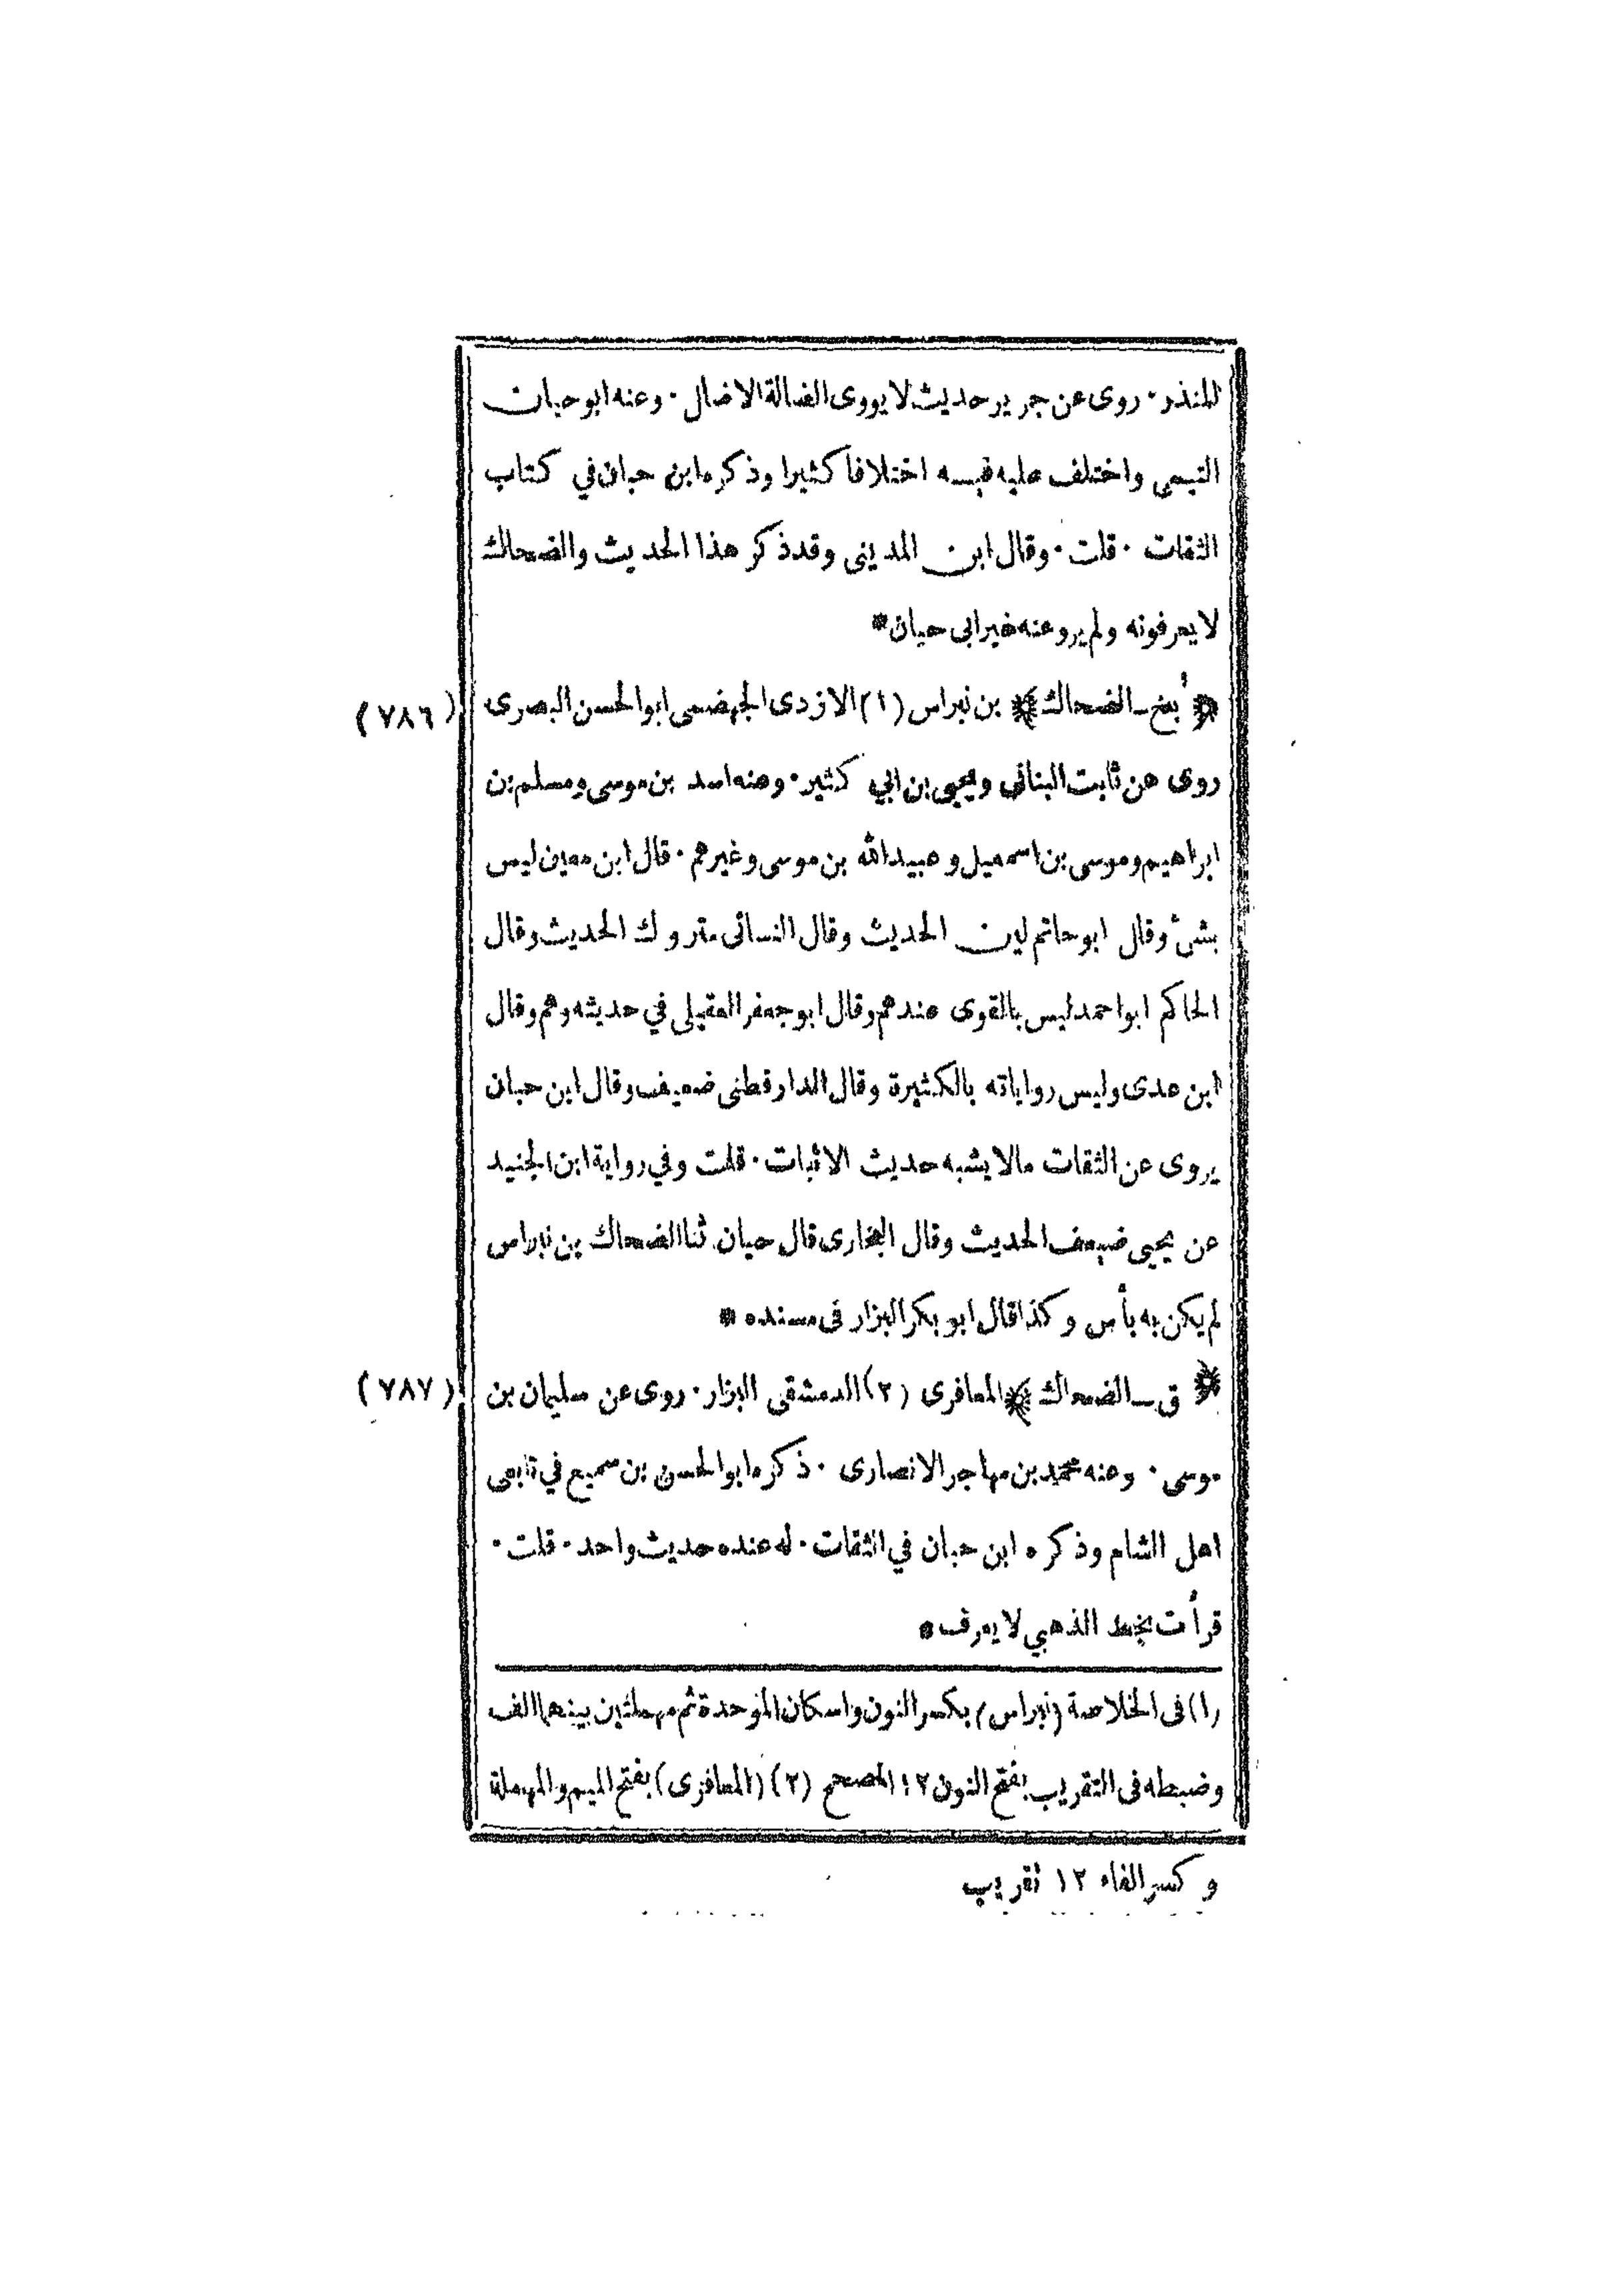 المنذر. روى عن جرير حديث لا يووى الضالة الا ضال. وعنه ابو حيان
التيمى واختلف عليه فيه اختلافا كثيرا وذكره ابن حبان في كتاب
الثقات. قلت. وقال ابن المدينى وقد ذكر هذا الحديث والضحاك
لا يعرفونه ولم يرو عنه غير ابى حيان*
(٧٨٦) ﴿بخ ـ الضحاك﴾ بن نبراس (١) الازدى الجهضمى ابو الحسن البصرى
روى عن ثابت البنانى ويحيى بن ابي كثير. وعنه اسد بن موسى ومسلم بن
ابراهيم وموسى بن اسمعيل وعبيدالله بن موسى وغيرهم. قال ابن معين ليس
بشئ وقال ابو حاتم لين الحديث وقال النسائى متروك الحديث وقال
الحاكم ابو احمد ليس بالقوى عندهم وقال ابو جعفر العقيلى في حديثه وهم وقال
ابن عدى وليس رواياته بالكثيرة وقال الدارقطنى ضعيف وقال ابن حبان
يروى عن الثقات مالا يشبه حديث الاثبات. قلت وفي رواية ابن الجنيد
عن يحيى ضعيف الحديث وقال البخارى قال حبان ثنا الضحاك بن نبراس
لم يكن به بأس وكذا قال ابو بكر البزار فى مسنده*
(٧٨٧) ﴿ق ـ الضحاك﴾ المعافرى (٢) الدمشقى البزار. روى عن سليمان بن
موسى. وعنه محمد بن مهاجر الانصارى. ذكره ابو الحسن بن سميع في تابعى
اهل الشام وذكره ابن حبان في الثقات. له عنده حديث واحد. قلت.
قرأت بخط الذهبي لا يعرف*
(١) فى الخلاصة (نبراس) بكسر النون واسكان الموحدة ثم مهملتين بينهما الف
وضبطه فى التقريب بفتح النون ١٢ المصحح (٢) (المعافرى) بفتح الميم والمهملة
وكسر الفاء ١٢ تقريب